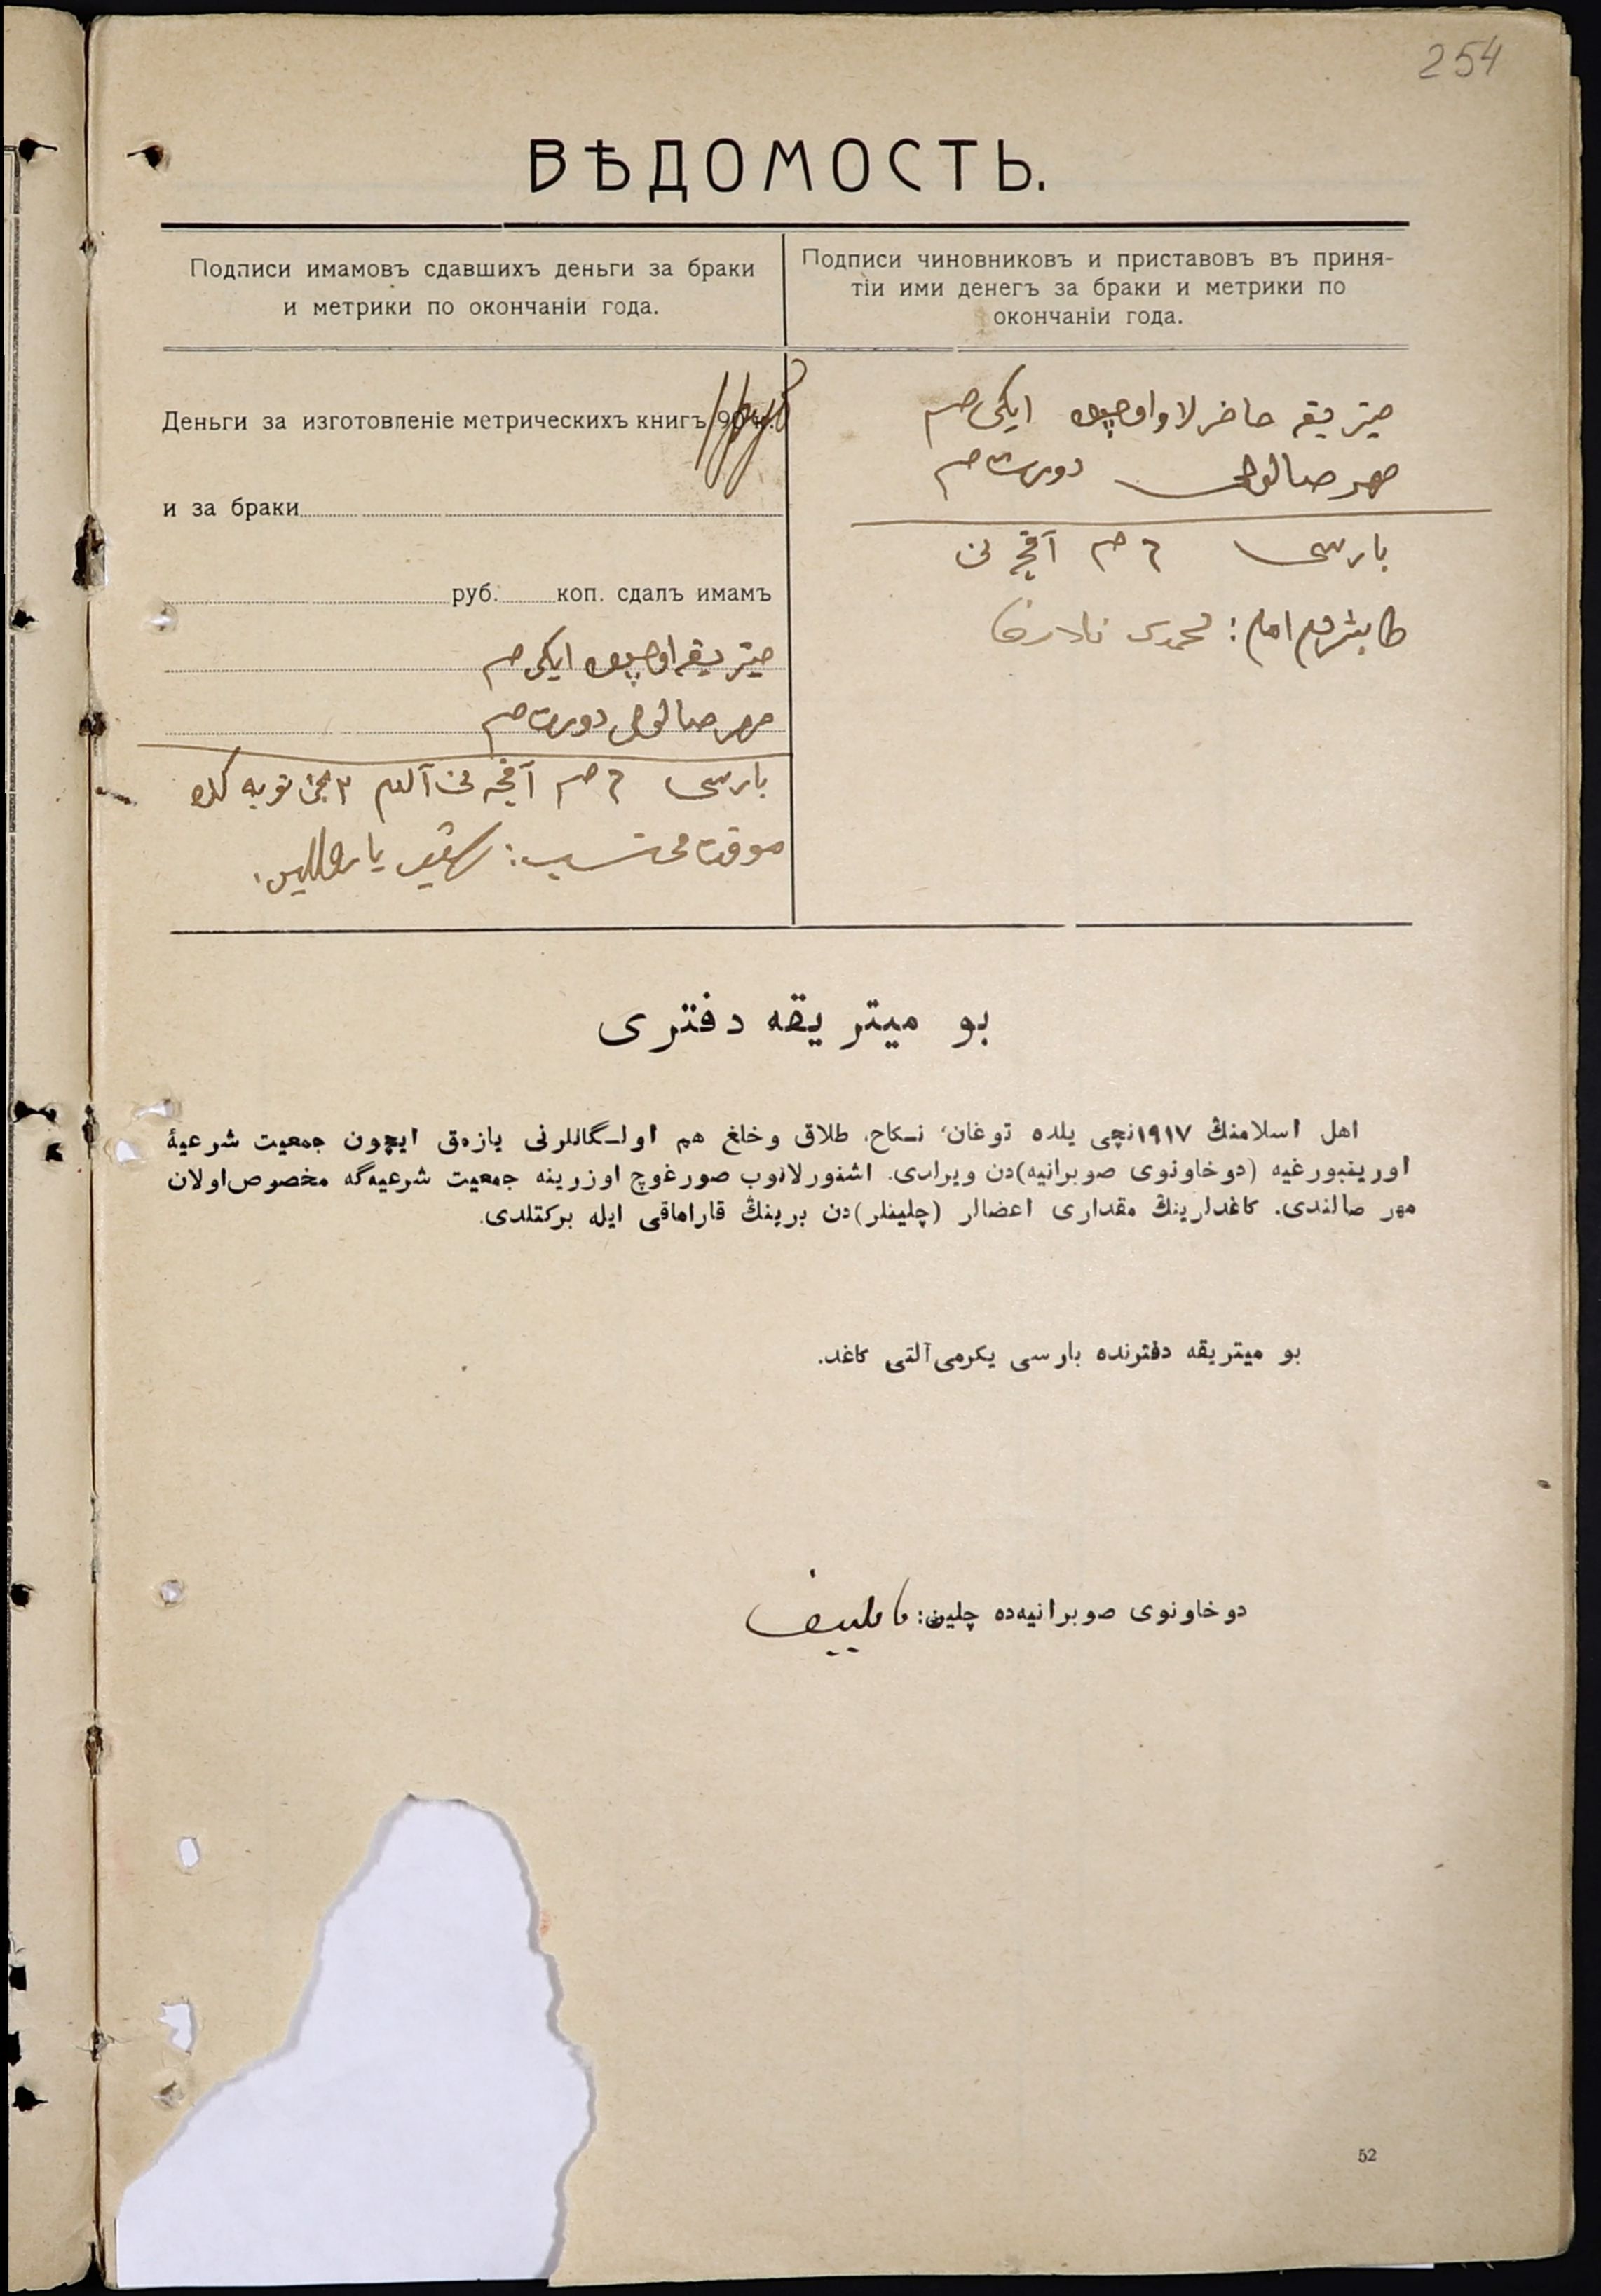 254
ВѢДОМОСТЬ.
Подписи имамовъ сдавшихъ деньги за браки
и метрики по окончаніи года.
Подписи чиновниковъ и приставовъ въ приня-
тіи ими денегъ за браки и метрики по
окончаніи года.
Деньги за изготовленіе метрическихъ книгъ
и за браки
руб. коп. сдалъ имамъ
ميتريقه اوچون ايكى صم
مهر صالو دورت صم
بارسى ٦ صم آقچه نى آلدم
موقت محتسب:
ميتريقه حاضرلاو اوچون ايكى صم
مهر صالو دورت صم
بارسى ٦ صم آقچه نى
طابشردم امام:
بو ميتريقه دفترى
اهل اسلامنڭ ١٩١٧نچى يلده توغان، نكاح، طلاق وخلغ هم اولـگانلرنى يازمق ايچون جمعيت شرعيهٔ
اورينبورغيه (دوخاونوى صوبرانيه)دن ويرلدى. اشنورلانوب صورغوچ اوزرينه جمعيت شرعيه‌گه مخصوص اولان
مهر صالندى. كاغدلرينڭ مقدارى اعضالر (چلينلر)دن برينڭ قارامافى ايله بركتلدى.
بو ميتريقه دفترنده بارسى يكرمى آلتى كاغد.
دوخاونوى صوبرانيه‌ده چلين:
52